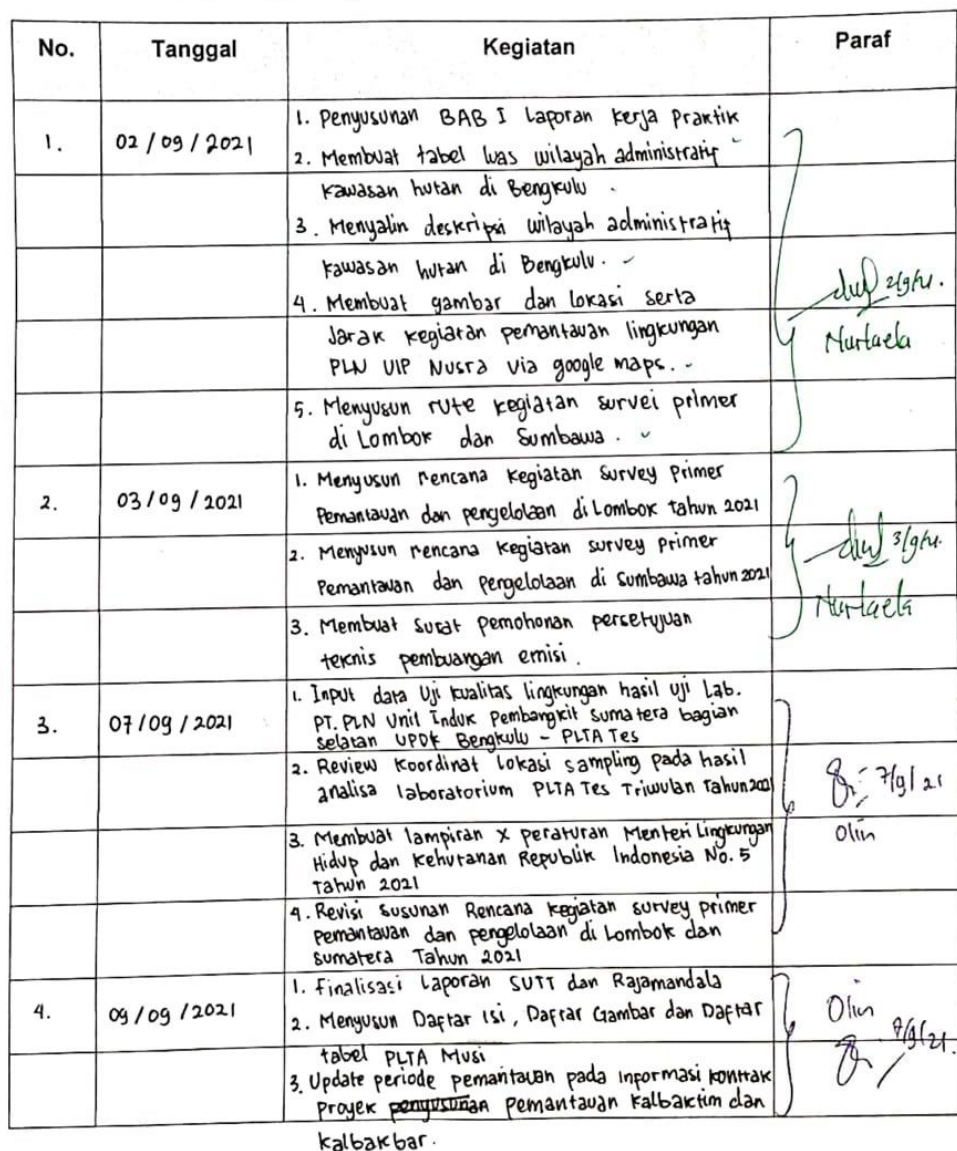 No. Tanggal Kegiatan Paraf
1. 02/09/2021
1. Penyusunan BAB I Laporan Kerja Praktik
2. Membuat tabel luas wilayah administratif
kawasan hutan di Bengkulu
3. Menyalin deskripsi wilayah administratif
kawasan hutan di Bengkulu.
4. Membuat gambar dan lokasi serta
Jarak kegiatan pemantauan lingkungan
PLN UIP Nusra via google maps.
5. Menyusun rute kegiatan survei primer
di Lombok dan Sumbawa.
2/9/21.
Nurlaela
2. 03/09/2021
1. Menyusun rencana kegiatan survey primer
Pemantauan dan pengelolaan di Lombok tahun 2021
2. Menyusun rencana kegiatan survey primer
Pemantauan dan pengelolaan di Sumbawa tahun 2021
3. Membuat surat pemohonan persetujuan
teknis pembuangan emisi.
3/9/21.
Nurlaela
3. 07/09/2021
1. Input data Uji kualitas lingkungan hasil uji Lab.
PT. PLN Unit Induk Pembangkit Sumatera bagian
selatan UPDK Bengkulu - PLTA Tes
2. Review koordinat lokasi sampling pada hasil
analisa laboratorium PLTA Tes Triwulan Tahun 2021
3. Membuat lampiran X peraturan Menteri Lingkungan
Hidup dan Kehutanan Republik Indonesia No. 5
Tahun 2021
4. Revisi susunan Rencana kegiatan survey primer
pemantauan dan pengelolaan di Lombok dan
sumatera Tahun 2021
7/9/21
Olin
4. 09/09/2021
1. Finalisasi Laporan SUTT dan Rajamandala
2. Menyusun Daftar Isi, Daftar Gambar dan Daftar
tabel PLTA Musi
3. Update periode pemantauan pada informasi kontrak
proyek penyusunan pemantauan Kalbaktim dan
kalbakbar.
Olin